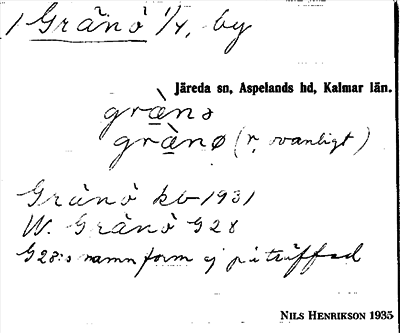 1 Gränö 1/4, by
Järeda sn, Aspelands hd, Kalmar län.
grä̀nə
grä̀nø (r, ovanligt)
Gränö kb 1931
W. Gränö G28
G28:s namnform ej påträffad
NILS HENRIKSON 1935